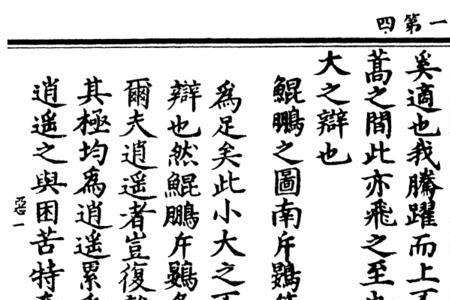 一第四
奚適也我騰躍而上不
蒿之間此亦飛之至也
大之辯也
鯤鵬之圖南斥鷃
為足矣此小大之
辯也然鯤鵬斥鷃各
爾夫逍遥者豈復
其極均為逍遥累
逍遥之與困苦特
惡一